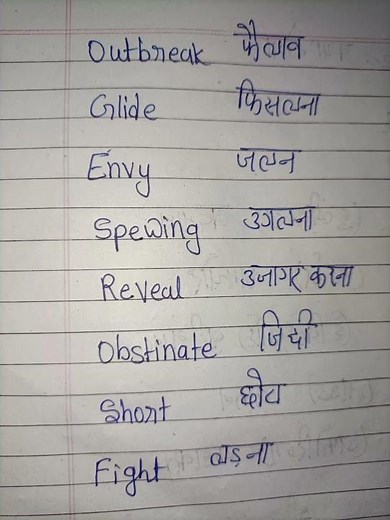 Outbreak फैलाव
Glide फिसलना
Envy जलन
Spewing उगलना
Reveal उजागर करना
Obstinate जिद्दी
Short छोटा
Fight लड़ना